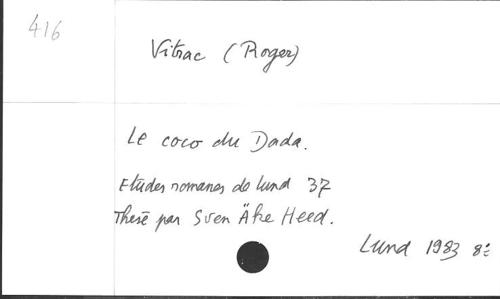 416
Vitrac (Roger)
Le coco du Dada.
Etudes romanes de lund 37
Thesē par Sven Äke Heed.
Lund 1983 8º